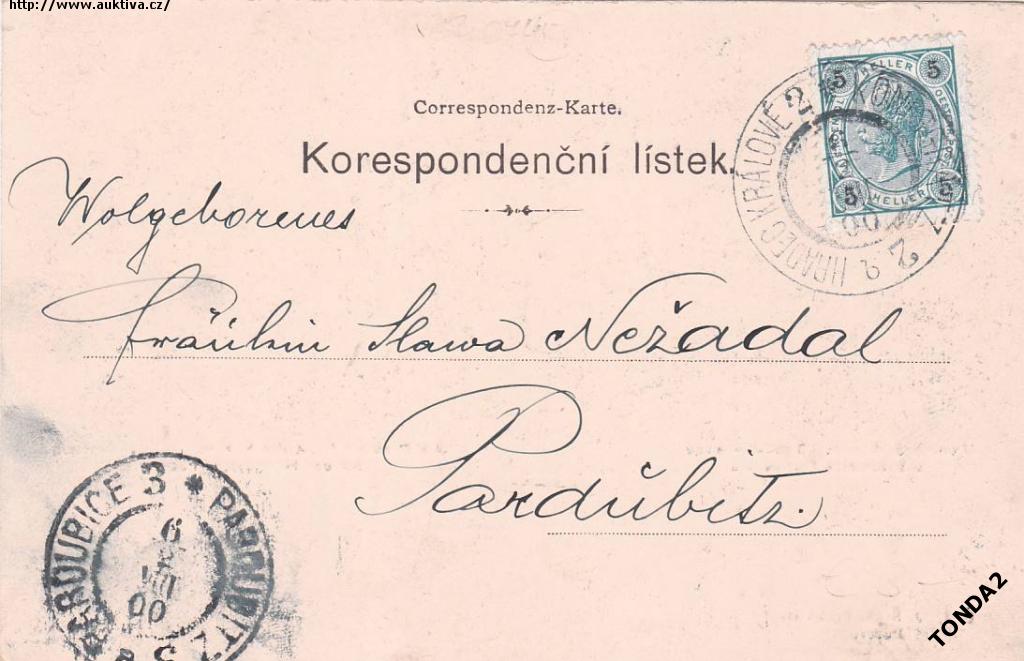 http://www.auktiva.cz/
Correspondenz-Karte.
Korespondenční lístek.
HELLER
5 5
5 5
HELLER
HRADEC KRÁLOVÉ 2
00
Wolgeborenes
Fräulein Slawa Nežadal
Pardŭbitz.
PARDUBICE 3 * PARDUBITZ 3
9
VII
00
TONDA2